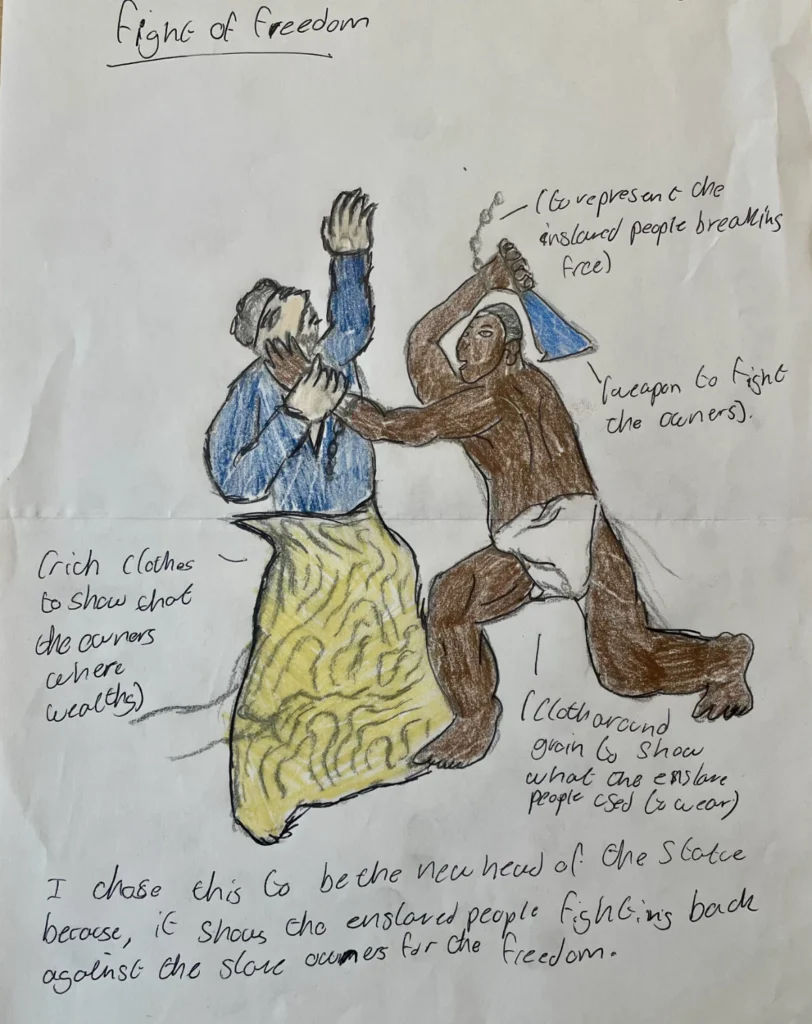 Fight of Freedom
(to represent the
inslaved people breaking
free)
(weapon to fight
the owners).
(rich clothes
to show that
the owners
where
wealths)
(Cloth around
groin to show
what the enslave
people used to wear)
I chose this to be the new head of the Statue
because, it shows the enslaved people fighting back
against the slave owners for the freedom.